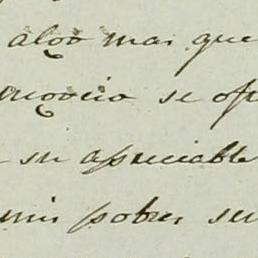 algo mas que
negocio se ofr
su apreciable
mis pobres ser